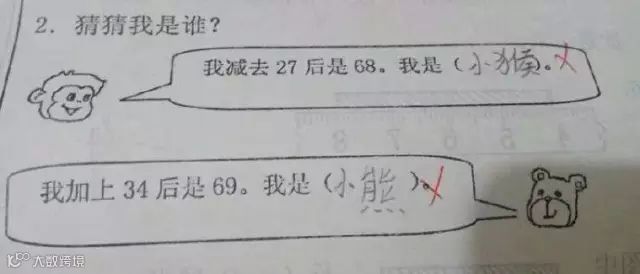 2. 猜猜我是谁?
我减去 27 后是 68。我是(小猴)。
我加上 34 后是 69。我是(小熊)。
大数跨境